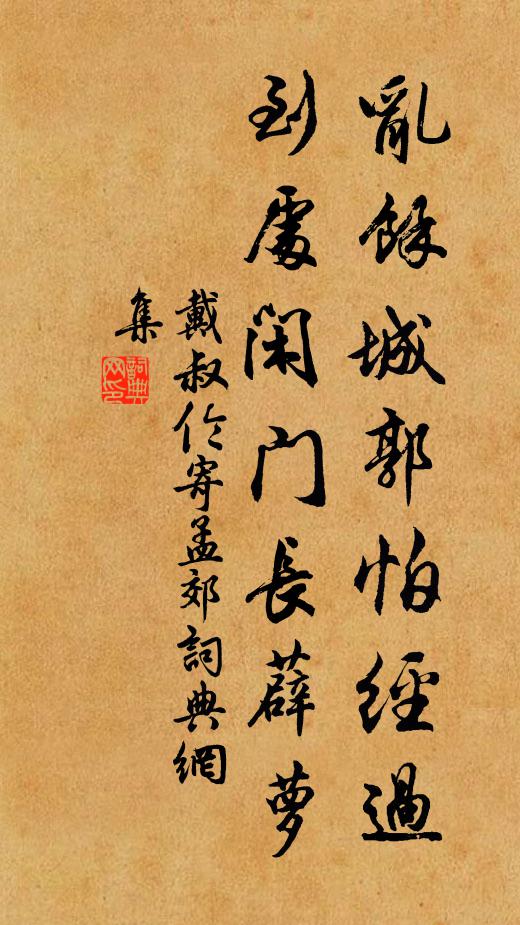 亂餘城郭怕經過
到處閑門長薜蘿
戴叔伦寄孟郊詞典網
集
詞典网印